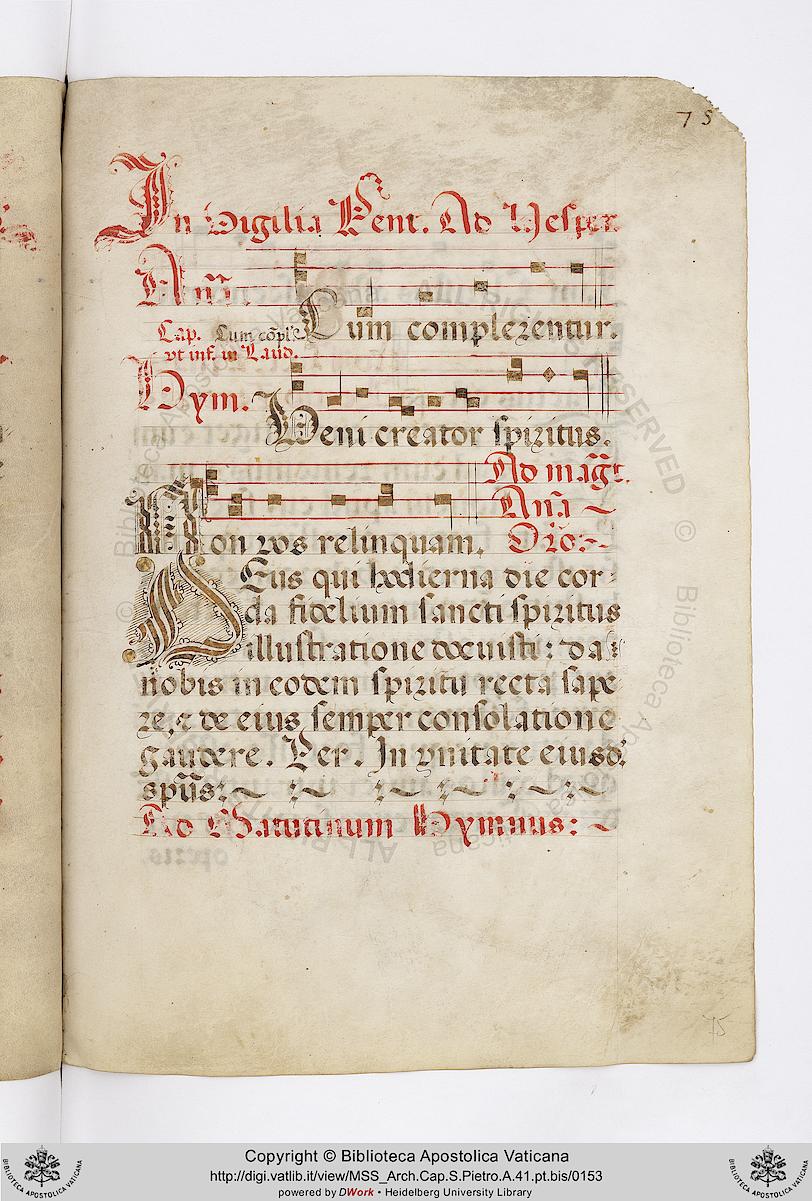 75
In Vigilia Pent. Ad Vesper.
Aña
Cum complerentur.
Cap. Cum cõple
vt inf. in Laud.
Hym.
Veni creator spiritus.
Ad mag̃t.
Aña
Non vos relinquam. Orõ:
Deus qui hodierna die cor
da fidelium sancti spiritus
illustratione docuisti: da
nobis in eodem spiritu recta sape
re, & de eius semper consolatione
gaudere. Per. In vnitate eiusd.
spũs:
Ad Matutinum Hymnus:
75
Copyright © Biblioteca Apostolica Vaticana
http://digi.vatlib.it/view/MSS_Arch.Cap.S.Pietro.A.41.pt.bis/0153
powered by DWork • Heidelberg University Library
BIBLIOTECA APOSTOLICA VATICANA
BIBLIOTECA APOSTOLICA VATICANA